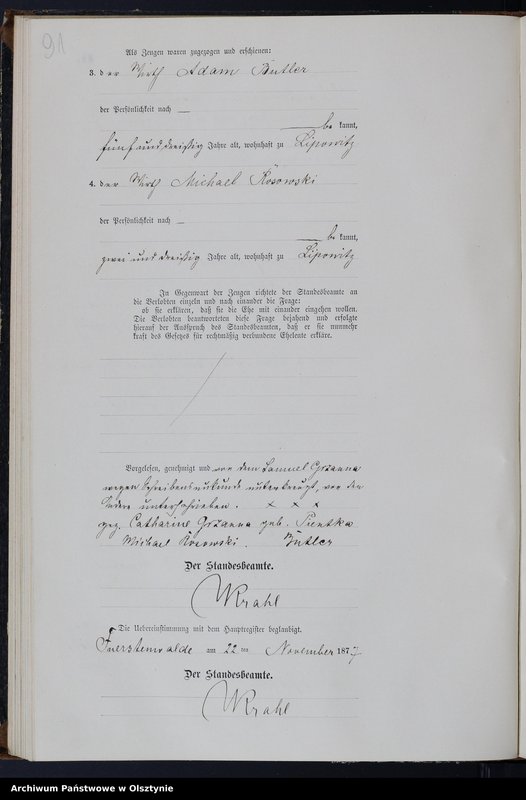 9A
Als Zeugen waren zugezogen und erschienen:
3. der Wirth Adam Butler
der Persönlichkeit nach —
be kannt,
fünf und dreißig Jahre alt, wohnhaft zu Lipowitz
4. der Wirth Michael Kosowski
der Persönlichkeit nach —
be kannt,
zwei und dreißig Jahre alt, wohnhaft zu Lipowitz
In Gegenwart der Zeugen richtete der Standesbeamte an
die Verlobten einzeln und nach einander die Frage:
ob sie erklären, daß sie die Ehe mit einander eingehen wollen.
Die Verlobten beantworteten diese Frage bejahend und erfolgte
hierauf der Ausspruch des Standesbeamten, daß er sie nunmehr
kraft des Gesetzes für rechtmäßig verbundene Eheleute erkläre.
Vorgelesen, genehmigt und von dem Samuel Grzanna
wegen Schreibensunkunde unterkreuzt, von den
Andern unterschrieben. x x x
gez. Catharine Grzanna geb. Pientka
Michael Kosowski. Butler
Der Standesbeamte.
Krahl
Die Uebereinstimmung mit dem Hauptregister beglaubigt.
Fuerstenwalde am 22 ten November 1877
Der Standesbeamte.
Krahl
Archiwum Państwowe w Olsztynie